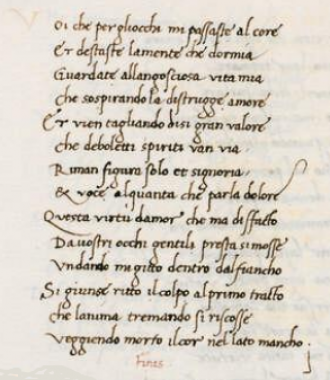 Oi che per gliocchi mi passaste al core
Et destaste lamente che dormia
Guardate allangosciosa vita mia
Che sospirando la distrugge amore
Et vien tagliando disi gran valore
Che deboletti spiriti van via.
Riman figura solo et signoria.
Et voce alquanta che parla dolore
Questa virtu damor che ma disfatto
Da vostri occhi gentili presta si mosse
Vn dardo mi gitto dentro dal fiancho
Si giunse ritto il colpo al primo tratto
Che lanima tremando si riscosse
Veggiendo morto il cor nel lato mancho.
Finis